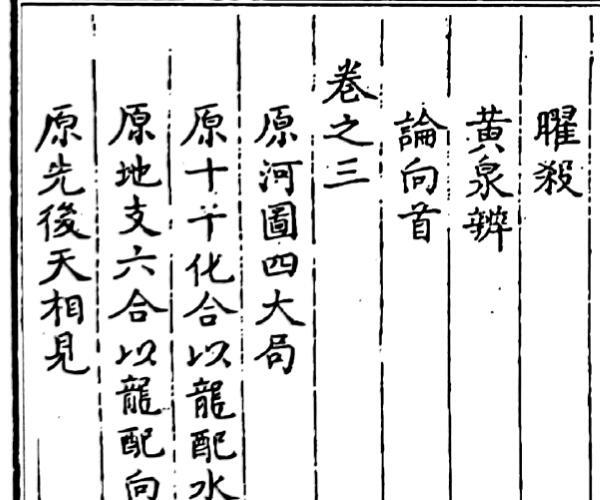 曜殺
黄泉辨
論向首
卷之三
原河圖四大局
原十干化合以龍配水
原地支六合以龍配向
原先後天相見